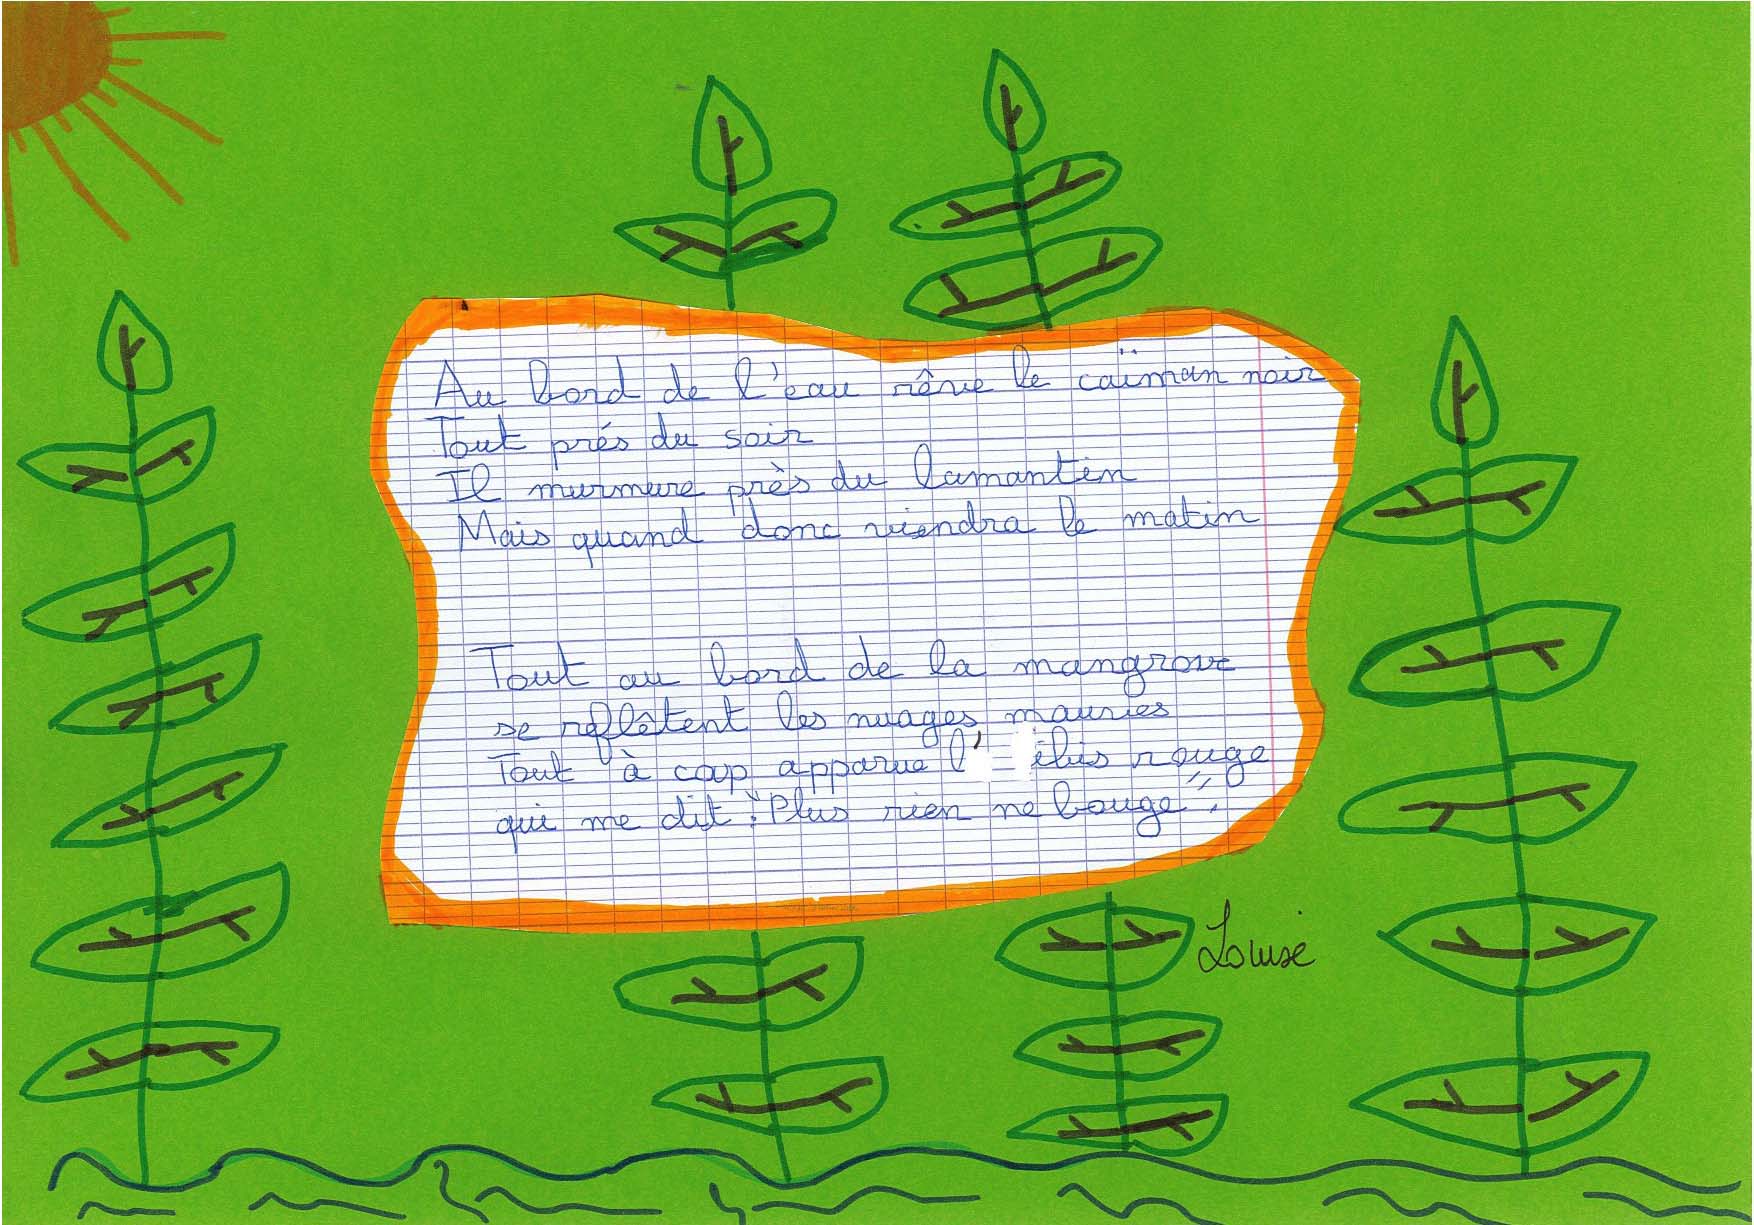 Au bord de l'eau rêve le caïman noir
Tout prés du soir
Il murmure près du lamantin
Mais quand donc viendra le matin
Tout au bord de la mangrove
se reflêtent les nuages mauves
Tout à coup apparue l' ibis rouge
qui me dit : "Plus rien ne bouge".
Louise